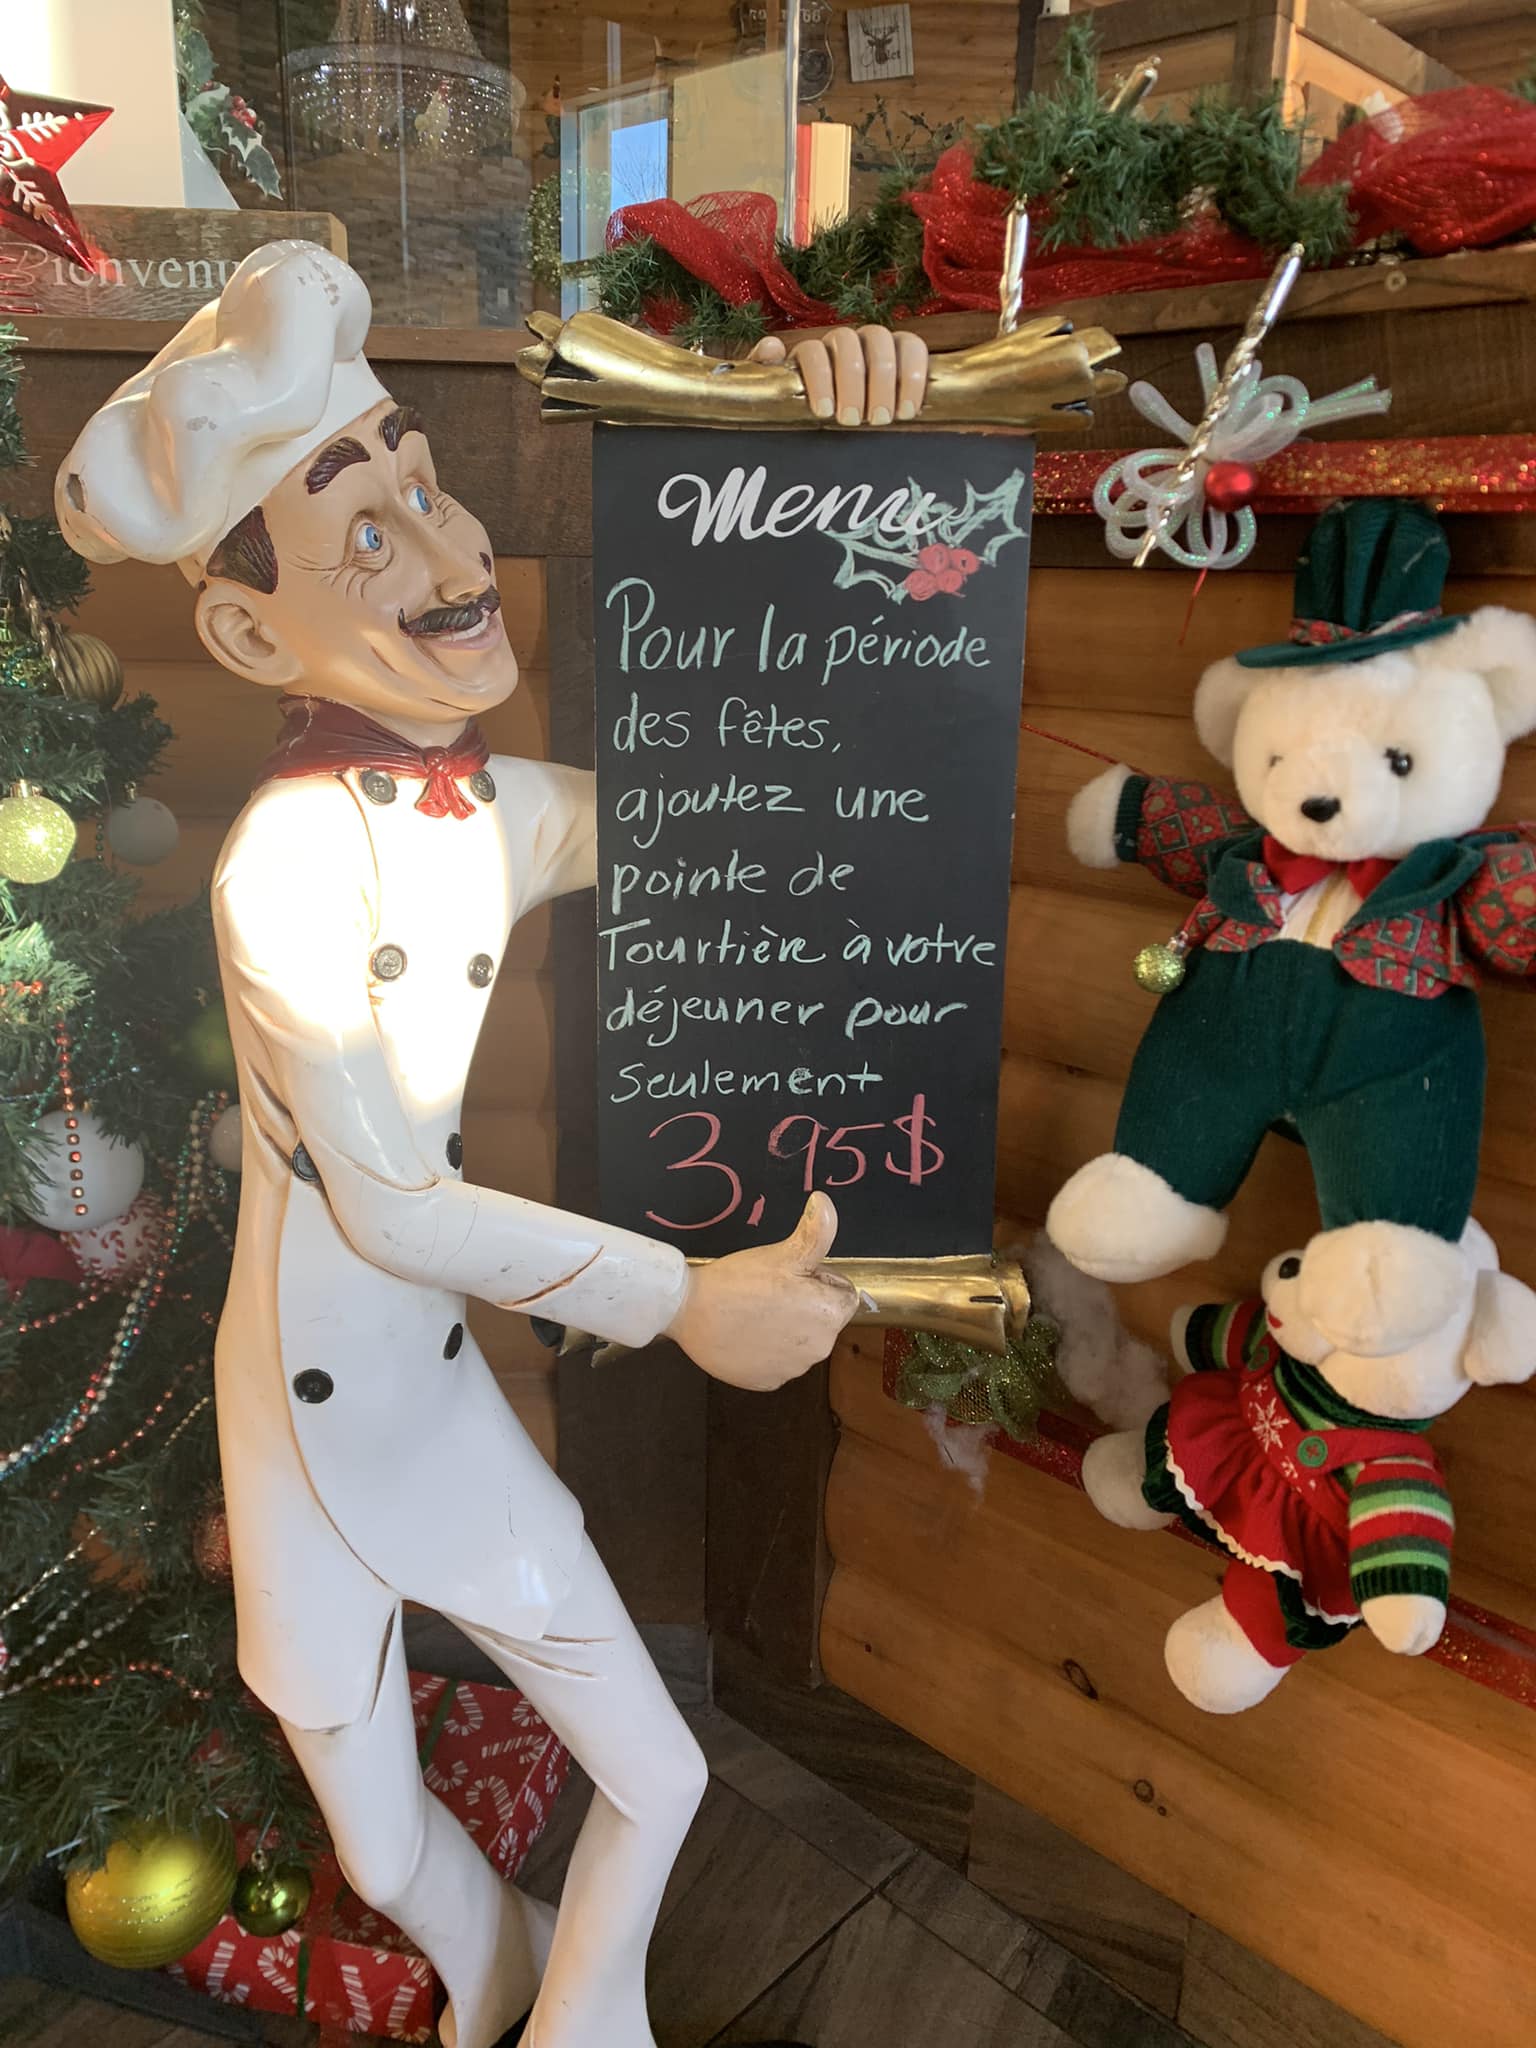 ROUTE 66
Bienvenu
Menu
Pour la période
des fêtes,
ajoutez une
pointe de
Tourtière à votre
déjeuner pour
seulement
3,95$